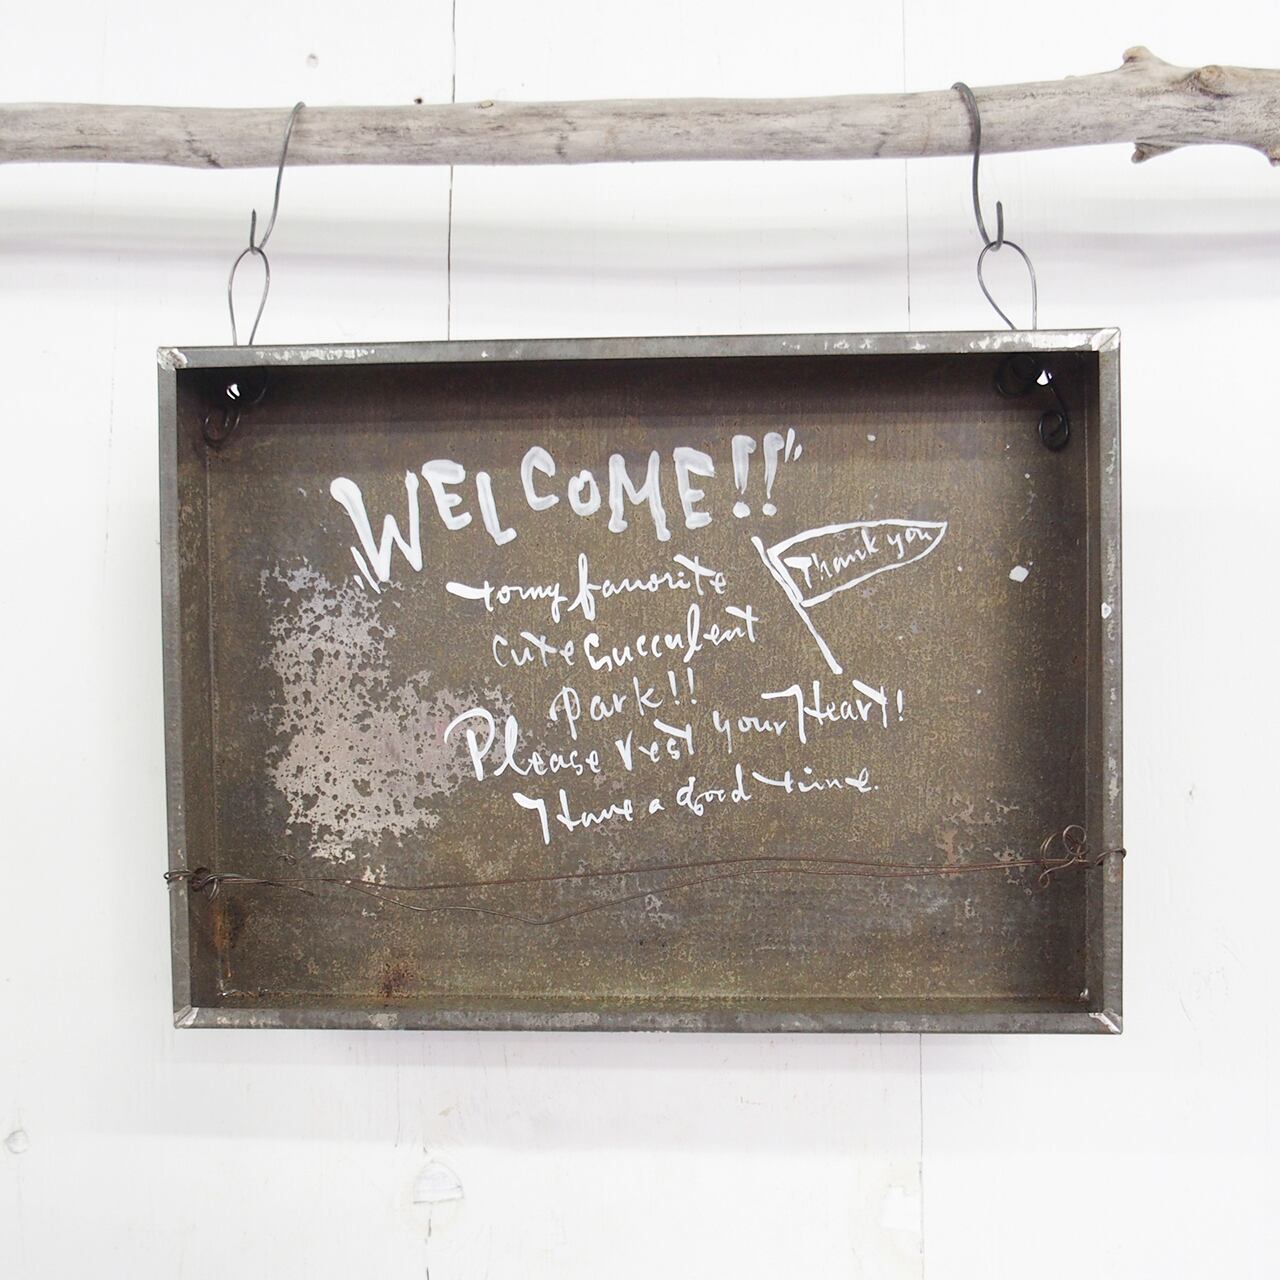 "WELCOME!!"
to my favorite
cute succulent
park!!
Please rest your Heart!
Have a good time.
Thank you